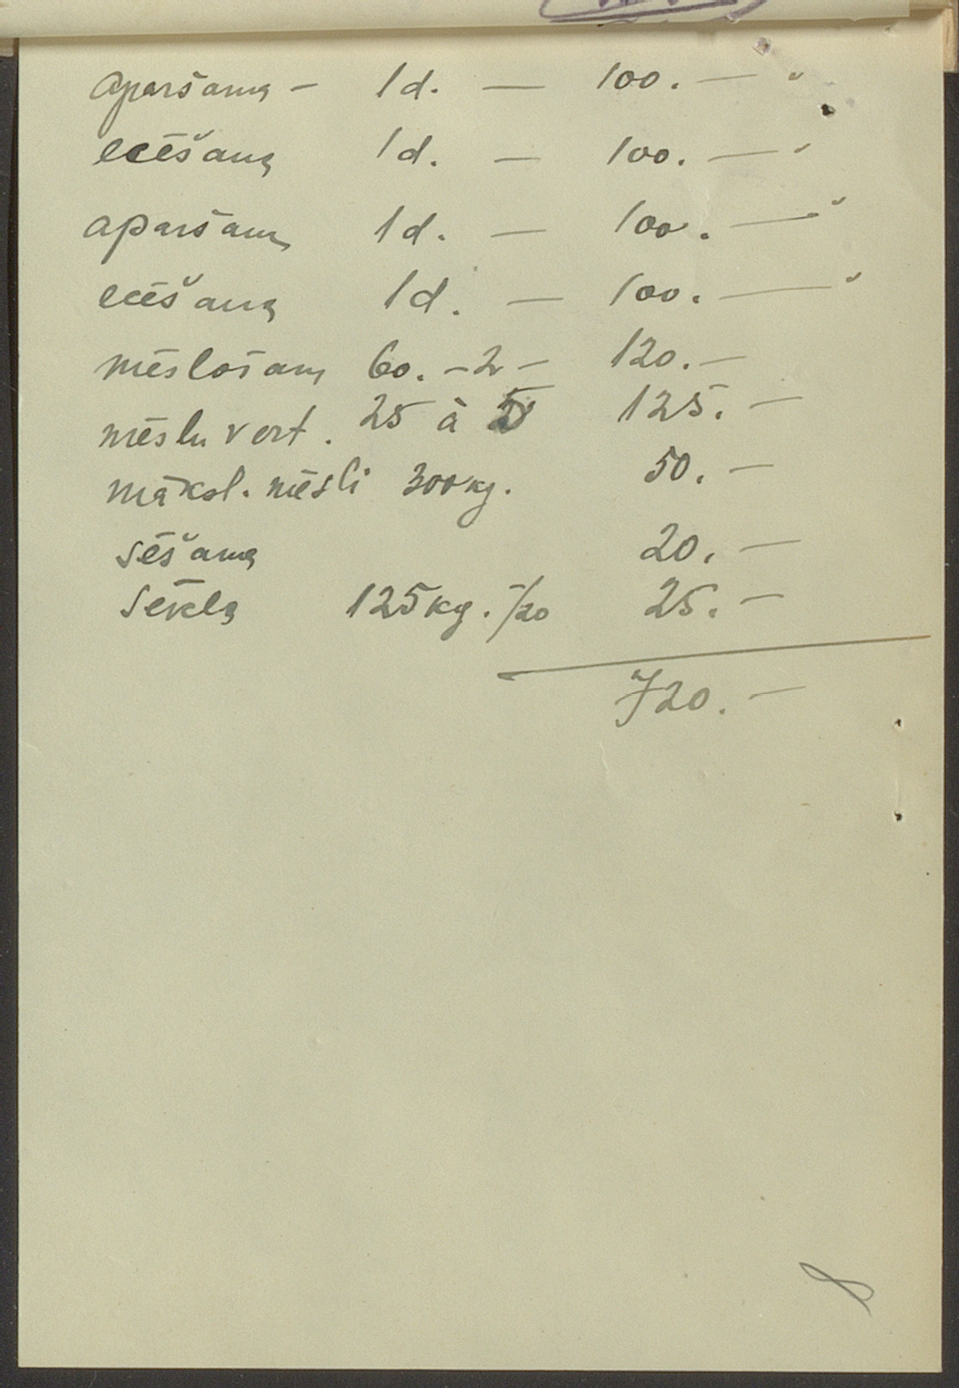 aparšana – 1d. — 100. — "
ecēšana 1d. — 100. — "
aparšana 1d. — 100. — "
ecēšana 1d. — 100. — "
mēslošana 60. – 2 – 120. —
mēslu vert. 25 à 5 125. —
māksl. mēsli 300 kg. 50. —
sēšana 20. —
Sēkla 125 kg. -/20 25. —
720. —
8